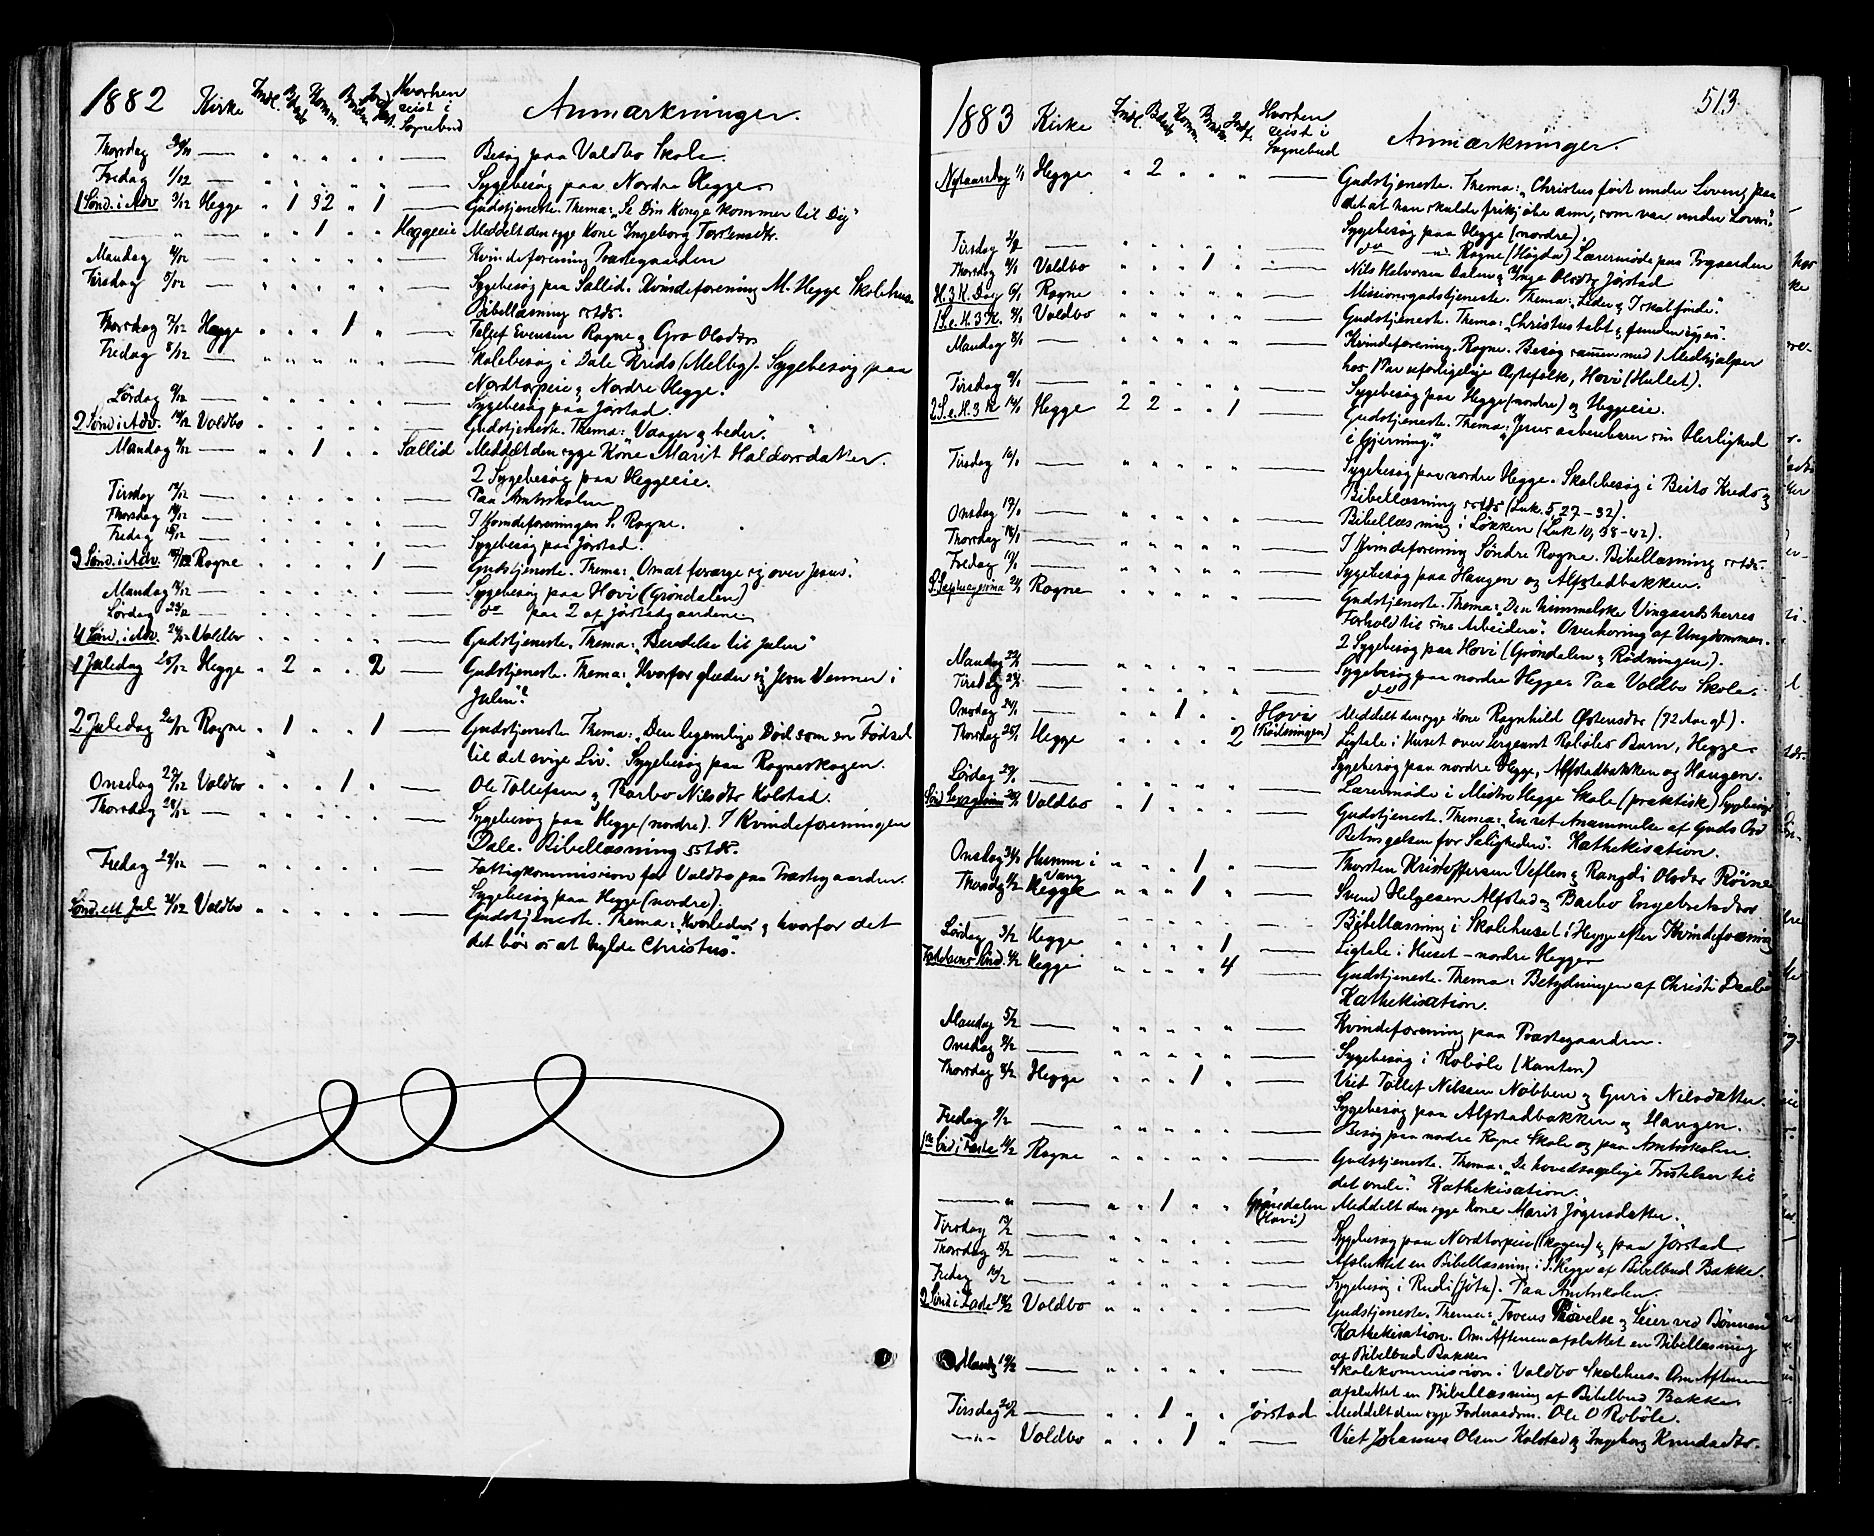 1882 Kirke Indl. B. Daab Komm. Brudev. Jordf. Hvorhen reist i Sognebud Anmærkninger.
Thorsdag 30/11 — " " " " " — Besøg paa Voldbo Skole.
Fredag 1/12 — " " " " " — Sygebesøg paa Nordre Hegge
1 Sønd. i Adv. 3/12 Hegge " 1 32 " 1 — Gudstjeneste. Thema: "Se Din Konge kommer til Dig"
" " " 1 " " Heggeeie Meddelt den syge Kone Ingeborg Torstensdtr.
Mandag 4/12 — " " " " " — Kvindeforening Præstegaarden
Tirsdag 5/12 — " " " " " — Sygebesøg paa Sallid. Kvindeforening M. Hegge Skolehus
Bibellæsning sstds.
Thorsdag 7/12 Hegge " " " 1 " — Tollef Evensen Rogne og Gro Olsdtr
Fredag 8/12 — " " " " " — Skolebesøg i Dale Kreds (Melby). Sygebesøg paa
Nordtorpeie og Nordre Hegge.
Lørdag 9/12 — " " " " " — Sygebesøg paa Jørstad.
2 Sønd i Adv. 10/12 Voldbo " " " " " — Gudstjeneste. Thema: "Vaager og beder."
Mandag 11/12 — " " 1 " " Sallid Meddelt den syge Kone Marit Haldorsdatter.
2 Sygebesøg paa Heggeeie.
Tirsdag 12/12 — " " " " " — Paa Amtsskolen
Thorsdag 14/12 — " " " " " — I Kvindeforeningen S. Rogne.
Fredag 15/12 — " " " " " — Sygebesøg paa Jørstad.
3 Sønd. i Adv. 17/12 Rogne " " " " 1 — Gudstjeneste. Thema: "Om at forarge sig over Jesus".
Mandag 18/12 — " " " " " — Sygebesøg paa Hovi (Grøndalen)
Lørdag 23/12 — " " " " " — do paa 2 af Jørstadgaardene
4 Sønd. i Adv. 24/12 Voldbo " " " " " — Gudstjeneste. Thema: "Beredelse til Julen"
1 Juledag 25/12 Hegge " 2 " " 2 — Gudstjeneste. Thema: "Hvorfor glæder sig Jesu Venner i
Julen"?
2 Juledag 26/12 Rogne " 1 " " 1 — Gudstjeneste Thema: "Den legemlige Død som en Fødsel
til det evige Liv". Sygebesøg paa Rogneskogen.
Onsdag 27/12 Voldbo " " " 1 " — Ole Tollefsen og Barbo Nilsdtr Kolstad.
Thorsdag 28/12 — " " " " " — Sygebesøg paa Hegge (nordre). I Kvindeforeningen
Dale. Bibellæsning sstds.
Fredag 29/12 — " " " " " — Fattigkommission for Voldbo paa Præstegaarden.
Sygebesøg paa Hegge (nordre).
Sønd. ell Jul 31/12 Voldbo " " " " " — Gudstjeneste. Thema: "Hvorledes og hvorfor det
det bør os at hylde Christus".
513
1883 Kirke Indl. B. Daab Komm. Brudev. Jordf. Hvorhen reist i Sognebud Anmærkninger.
Nytaarsdag 1/1 Hegge " 2 " " " — Gudstjeneste. Thema: "Christus født under Loven, paa
det at han skulde frikjøbe dem, som var under Loven".
Sygebesøg paa Hegge (nordre).
Tirsdag 2/1 — " " " " " — do — " — Rogne (Høgda) Læremøde paa Prgaarden
Thorsdag 4/1 Voldbo " " " 1 " — Nils Halvorsen Dalen og Inga Olsdtr Jørstad
H. 3 K. Dag 6/1 Rogne " " " " " — Missionsgudstjeneste. Thema: "Leder og I skal finde".
1 S. e. H. 3 K. 7/1 Voldbo " " " " " — Gudstjeneste. Thema: "Christus tabt og funden igjen".
Mandag 8/1 — " " " " " — Kvindeforening Rogne. Besøg sammen med 1 Medhjælper
hos 1 Par uforligelige Ægtefolk, Hovi (Hullet).
Tirsdag 9/1 — " " " " " — Sygebesøg paa Hegge (nordre) og Heggeeie.
2 S. e. H. 3 K 14/1 Hegge 2 2 " " 1 — Gudstjeneste. Thema: "Jesus aabenbarer sin Herlighed
i Gjerning".
Tirsdag 16/1 — " " " " " — Sygebesøg paa nordre Hegge. Skolebesøg i Beito Kreds og
Bibellæsning sstds (Luk. 5, 27-32).
Onsdag 17/1 — " " " " " — Bibellæsning i Løkken (Luk 10, 38-42).
Thorsdag 18/1 — " " " " " — I Kvindeforening Søndre Rogne. Bibellæsning sstds.
Fredag 19/1 — " " " " " — Sygebesøg paa Haugen og Alfstadbakken.
S. Septuagesima 21/1 Rogne " " " " " — Gudstjeneste. Thema: "Den himmelske Vingaardsherres
Forhold til sine Arbeidere". Overhøring af Ungdommen.
2 Sygebesøg paa Hovi (Grøndalen og Rødningen).
Mandag 22/1 — " " " " " — Sygebesøg paa nordre Hegge. Paa Voldbo Skole.
Tirsdag 23/1 — " " " " " — do
Onsdag 24/1 — " " 1 " " Hovi (Rødningen) Meddelt den syge Kone Ragnhild Østensdtr (72 Aar gl).
Thorsdag 25/1 Hegge " " " " 2 Ligtale i Huset over Sergeant Robøles Barn, Hegge.
Sygebesøg paa nordre Hegge, Alfstadbakken og Haugen.
Lørdag 27/1 — " " " " " — Læremøde i Midtre Hegge Skole (praktisk) Sygebesøg
Sønd Sexagesima 28/1 Voldbo " 1 " " " — Gudstjeneste. Thema: "En ret Anammelse af Guds Ord
Betingelsen for Saligheden". Kathekisation.
Onsdag 31/1 Hurum i Vang " " " 1 " — Thorsten Kristoffersen Veflen og Rangdi Olsdtr Røvne
Thorsdag 1/2 Hegge " " " 1 " — Svend Helgesen Alfstad og Barbo Engebretsdtr
Bibellæsning i Skolehuset i Hegge efter Kvindeforening
Lørdag 3/2 Hegge " " " " 1 — Ligtale i Huset - nordre Hegge
Fastelavns Sønd. 4/2 Hegge " " " " 4 — Gudstjeneste. Thema: Betydningen af Christi Daab
Kathekisation.
Mandag 5/2 — " " " " " — Kvindeforening paa Præstegaarden.
Onsdag 7/2 — " " " " " — Sygebesøg i Robøle (Kanten)
Thorsdag 8/2 Hegge " " " 1 " — Viet Tollef Nilssen Nobben og Guri Nilsdatter.
Sygebesøg paa Alfstadbakken og Haugen.
Fredag 9/2 — " " " " " — Besøg paa nordre Rogne Skole og paa Amtsskolen.
1ste Sønd. i Faste 11/2 Rogne " " " " " — Gudstjeneste. Thema: "De hovedsagelige Fristelser til
det onde". Kathekisation.
— " — " " 1 " " Grønedalen (Hovi) Meddelt den syge Kone Marit Jøgersdatter.
Tirsdag 13/2 — " " " " " — Sygebesøg paa Nordtorpeie (Skogen) og paa Jørstad
Thorsdag 15/2 — " " " " " — Afsluttet en Bibellæsning i S. Hegge af Bibelbud Bakke.
Fredag 16/2 — " " " " " — Sygebesøg i Rudi (Jøtu). Paa Amtsskolen.
2 Sønd i Faste 18/2 Voldbo " " " " " — Gudstjeneste. Thema: "Troens Prøvelse og Seier ved Bønnen"
Kathekisation. Om Aftenen afsluttet en Bibellæsning
af Bibelbud Bakke
Mandg 19/2 — " " " " " — Skolekommission i Voldbo Skolehus. Om Aftenen
afsluttet en Bibellæsning af Bibelbud Bakke
Tirsdag 20/2 — " " 1 " " Jørstad Meddelt den syge Føderaadsm. Ole O Robøle.
— " — Voldbo " " " 1 " — Viet Johannes Olsen Kolstad og Ingeborg Knudsdtr.